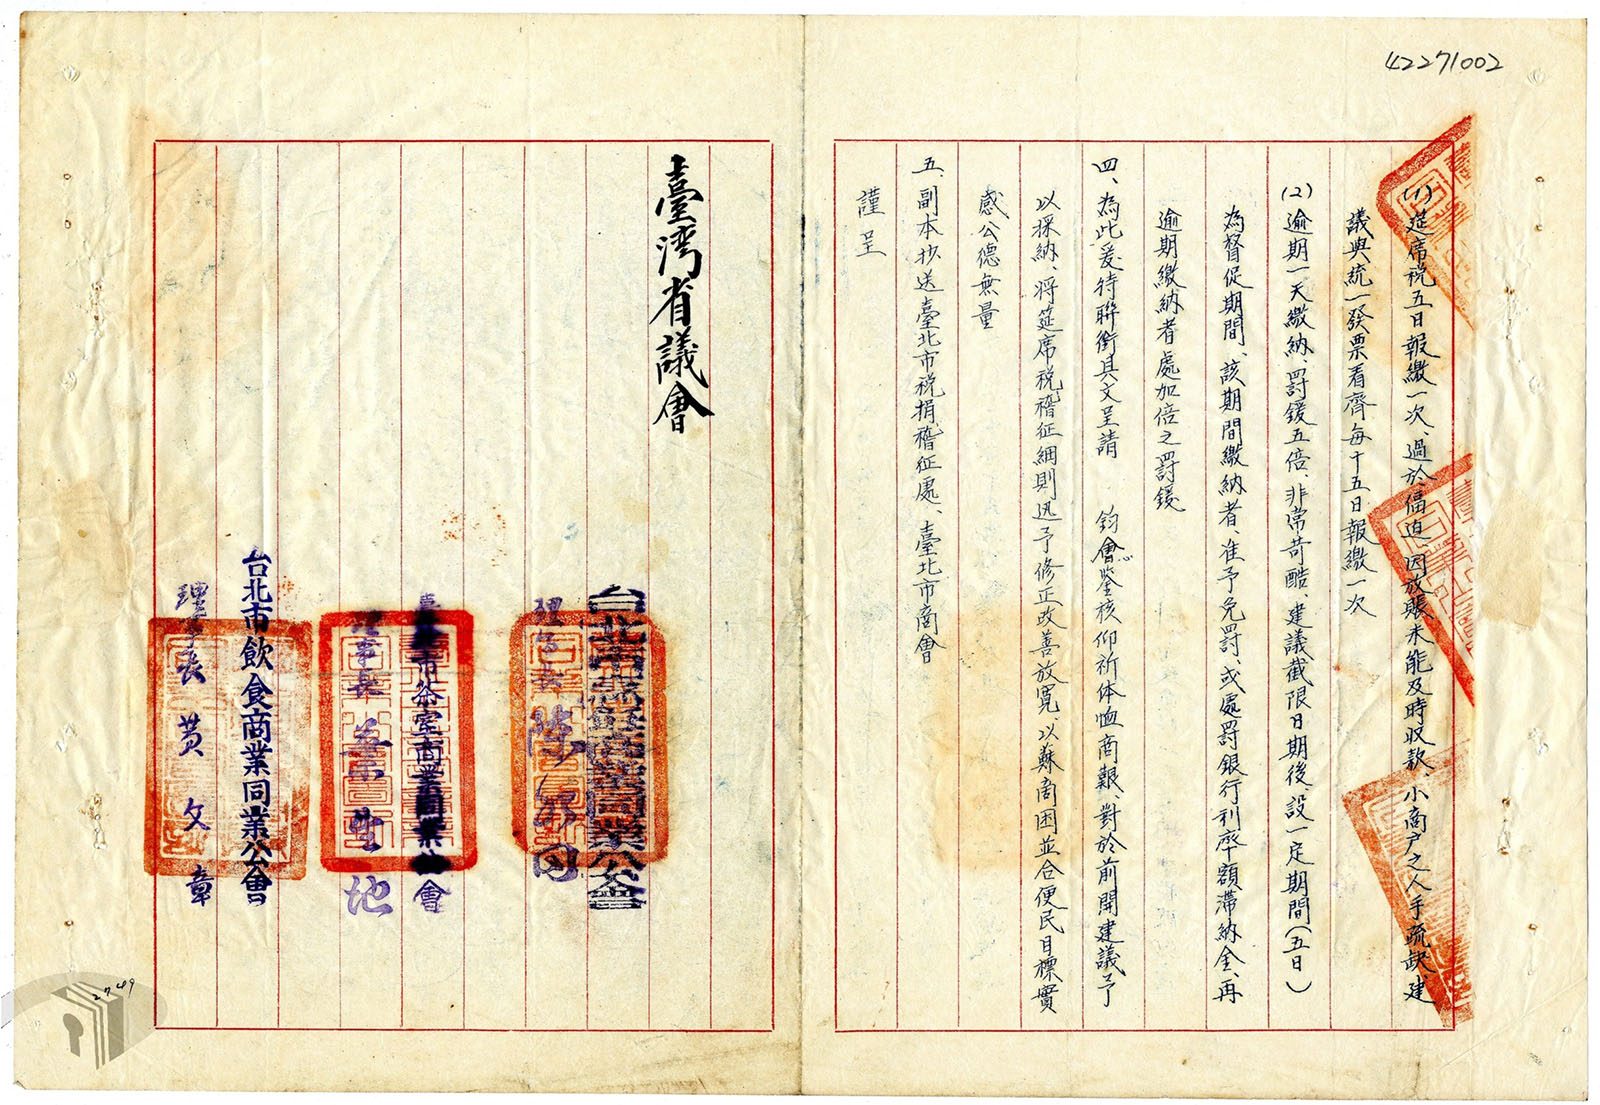 42271002
(1)筵席稅五日報繳一次、過於偪迫、因放賬未能及時收款、小商戶之人手疏缺、建
議與統一發票看齊每十五日報繳一次
(2)逾期一天繳納、罰鍰五倍、非常苛酷、建議截限日期後設一定期間(五日)
為督促期間、該期間繳納者、准予免罰、或處罰銀行利率額滯納金、再
逾期繳納者處加倍之罰鍰
四、為此爰特聯銜具文呈請 鈞會鑒核仰祈体恤商艱、對於前開建議予
以採納、將筵席稅稽征細則迅予修正改善放寬、以蘇商困並合便民目標、實
感公德無量
五、副本抄送臺北市稅捐稽征處、臺北市商會
謹呈
臺灣省議會
台北市 商業同業公會
理事長 陳
市茶室商業同業公會
理事長 地
台北市飲食商業同業公會
理事長 黃文章
2749